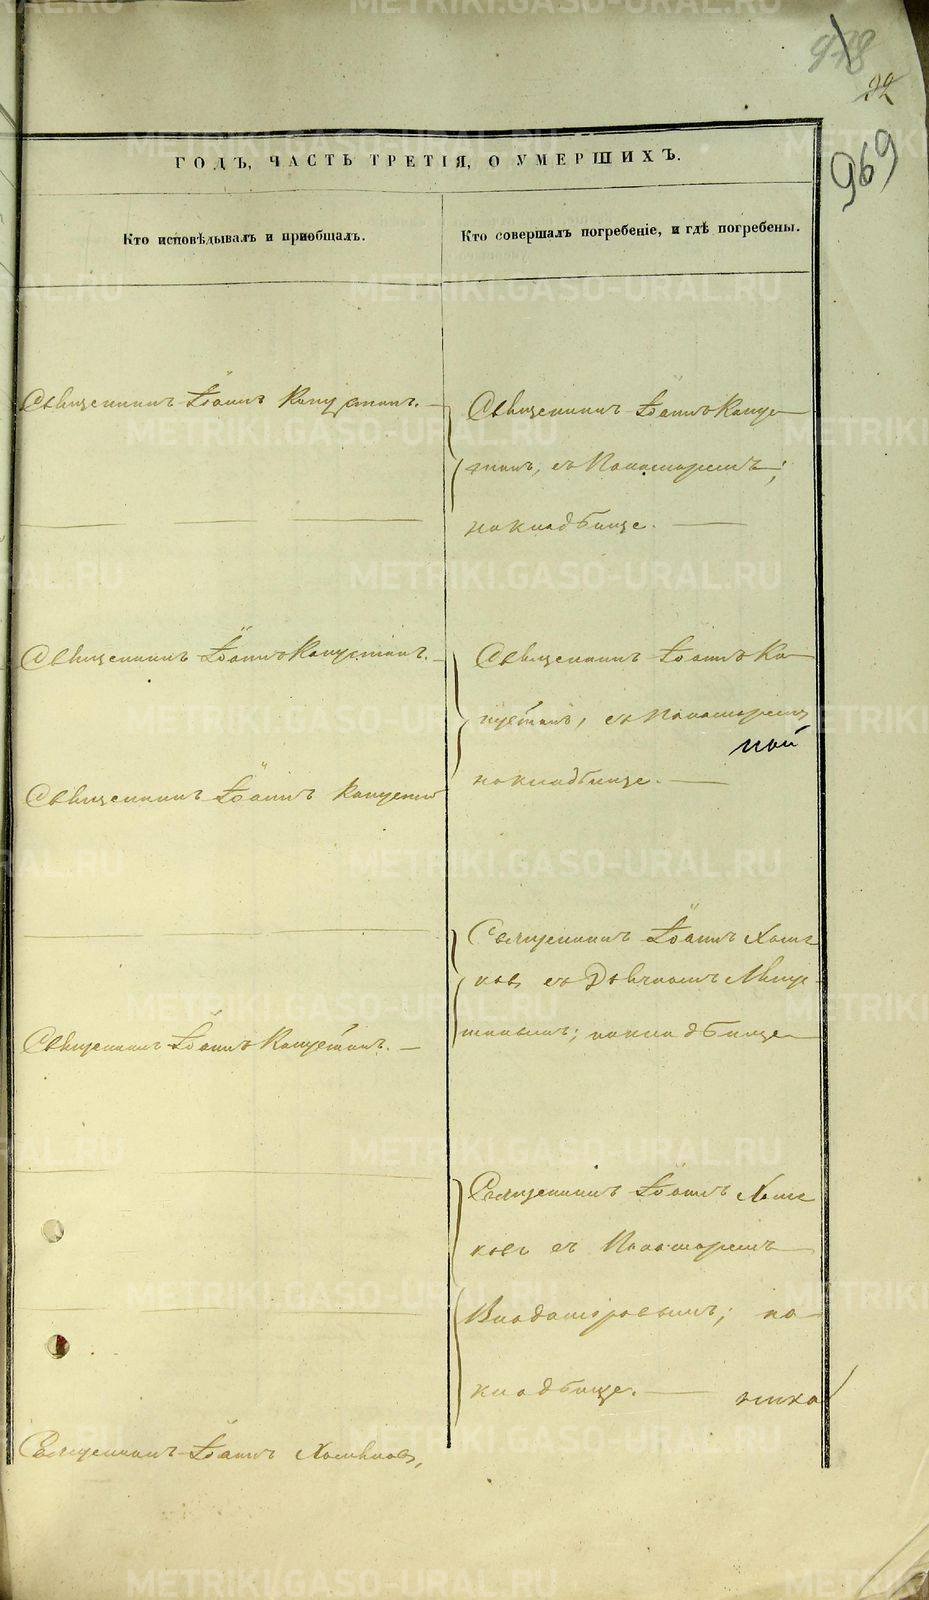 92
969
ГОДЪ, ЧАСТЬ ТРЕТІЯ, О УМЕРШИХЪ.
Кто исповѣдывалъ и пріобщалъ.
Кто совершалъ погребеніе, и гдѣ погребены.
Священникъ Іоаннъ Капустинъ.
Священникъ Іоаннъ Капус-
тинъ, съ Пономаремъ;
на кладбище.
Священникъ Іоаннъ Капустинъ.
Священникъ Іоаннъ Ка-
пустинъ, съ Пономаремъ
на кладбище.
Священникъ Іоаннъ Капустин
Священникъ Іоаннъ Хом-
ковъ съ Дьячкомъ
на кладбище
Священникъ Іоаннъ Капустинъ.
Священникъ Іоаннъ
ковъ съ Пономаремъ
на
кладбище.
Священникъ Іоаннъ
METRIKI.GASO-URAL.RU